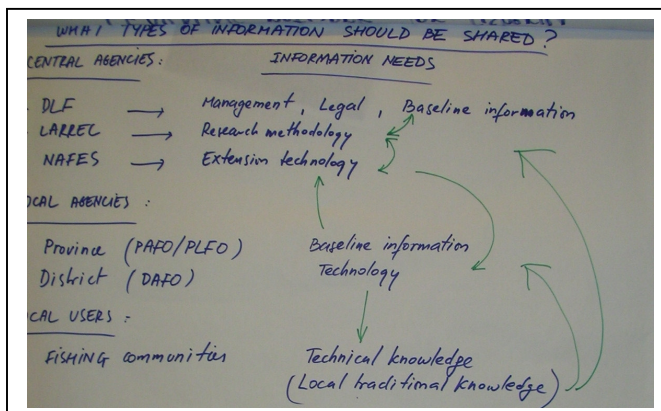 WHAT TYPES OF INFORMATION SHOULD BE SHARED?
CENTRAL AGENCIES: INFORMATION NEEDS
DLF → Management, Legal, Baseline information
LARREC → Research methodology
NAFES → Extension technology
OCAL AGENCIES:
Province (PAFO/PLFO) Baseline information
District (DAFO) Technology
OCAL USERS:
FISHING communities Technical knowledge
(Local traditional knowledge)